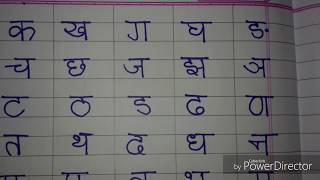 क ख ग घ ङ
च छ ज झ ञ
ट ठ ड ढ ण
त थ द ध न
by PowerDirector